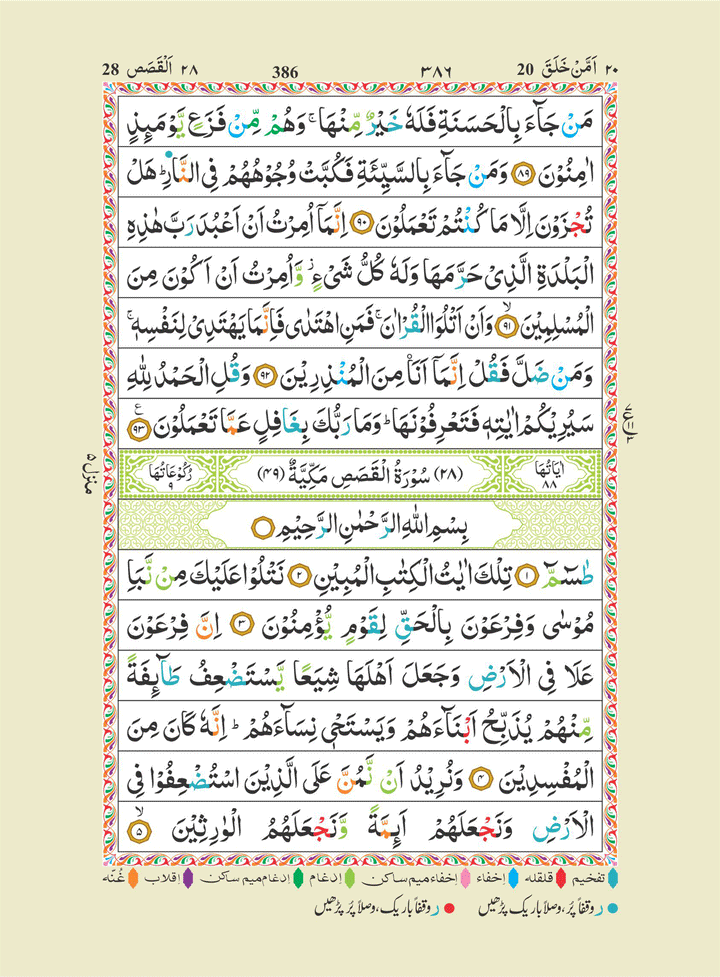 ٢٠ اَمَّنْ خَلَقَ 20 ٣٨٦ 386 ٢٨ اَلْقَصَص 28
مَنْ جَآءَ بِالْحَسَنَةِ فَلَهٗ خَيْرٌ مِّنْهَا ۚ وَهُمْ مِّنْ فَزَعٍ يَّوْمَىِٕذٍ
اٰمِنُوْنَ ﴿٨٩﴾ وَمَنْ جَآءَ بِالسَّيِّئَةِ فَكُبَّتْ وُجُوْهُهُمْ فِى النَّارِ ؕ هَلْ
تُجْزَوْنَ اِلَّا مَا كُنْتُمْ تَعْمَلُوْنَ ﴿٩٠﴾ اِنَّمَآ اُمِرْتُ اَنْ اَعْبُدَ رَبَّ هٰذِهِ
الْبَلْدَةِ الَّذِىْ حَرَّمَهَا وَلَهٗ كُلُّ شَىْءٍ ؗ وَّاُمِرْتُ اَنْ اَكُوْنَ مِنَ
الْمُسْلِمِيْنَ ﴿٩١﴾ۙ وَاَنْ اَتْلُوَا الْقُرْاٰنَ ۚ فَمَنِ اهْتَدٰى فَاِنَّمَا يَهْتَدِىْ لِنَفْسِهٖ ۚ
وَمَنْ ضَلَّ فَقُلْ اِنَّمَآ اَنَا۠ مِنَ الْمُنْذِرِيْنَ ﴿٩٢﴾ وَقُلِ الْحَمْدُ لِلّٰهِ
سَيُرِيْكُمْ اٰيٰتِهٖ فَتَعْرِفُوْنَهَا ؕ وَمَا رَبُّكَ بِغَافِلٍ عَمَّا تَعْمَلُوْنَ ﴿٩٣﴾ ع
منزل ٥
اٰيَاتُهَا ٨٨ (٢٨) سُوْرَةُ الْقَصَصِ مَكِّيَّةٌ (٤٩) رُكُوْعَاتُهَا
بِسْمِ اللّٰهِ الرَّحْمٰنِ الرَّحِيْمِ
طٰسٓمّٓ ﴿١﴾ تِلْكَ اٰيٰتُ الْكِتٰبِ الْمُبِيْنِ ﴿٢﴾ نَتْلُوْا عَلَيْكَ مِنْ نَّبَاِ
مُوْسٰى وَفِرْعَوْنَ بِالْحَقِّ لِقَوْمٍ يُّؤْمِنُوْنَ ﴿٣﴾ اِنَّ فِرْعَوْنَ
عَلَا فِى الْاَرْضِ وَجَعَلَ اَهْلَهَا شِيَعًا يَّسْتَضْعِفُ طَآىِٕفَةً
مِّنْهُمْ يُذَبِّحُ اَبْنَآءَهُمْ وَيَسْتَحْىٖ نِسَآءَهُمْ ؕ اِنَّهٗ كَانَ مِنَ
الْمُفْسِدِيْنَ ﴿٤﴾ وَنُرِيْدُ اَنْ نَّمُنَّ عَلَى الَّذِيْنَ اسْتُضْعِفُوْا فِى
الْاَرْضِ وَنَجْعَلَهُمْ اَىِٕمَّةً وَّنَجْعَلَهُمُ الْوٰرِثِيْنَ ﴿٥﴾ۙ
تفخیم قلقلہ اِخفاء اِخفاء میم ساکن اِدغام اِدغام میم ساکن اِقلاب غُنّہ
ر وقفاً پُر، وصلاً باریک پڑھیں ر وقفاً باریک، وصلاً پُر پڑھیں